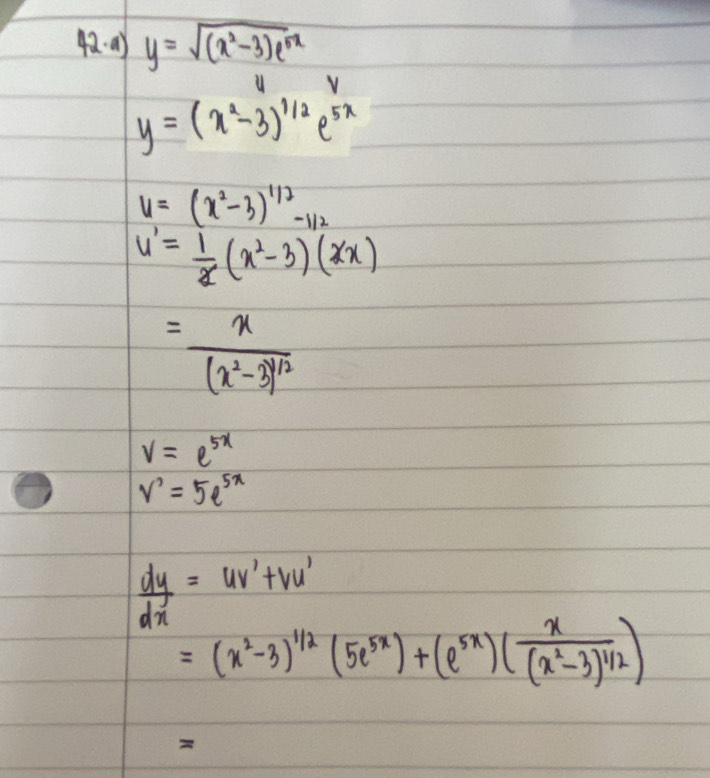 42.a) y = √((x²-3)e⁵ˣ
u v
y = (x²-3)^1/2 e^5x
u = (x²-3)^1/2
u' = 1/2 (x²-3)^-1/2 (2x)
= x/(x²-3)^1/2
v = e^5x
v' = 5e^5x
dy/dx = uv' + vu'
= (x²-3)^1/2 (5e^5x) + (e^5x)(x/(x²-3)^1/2)
=